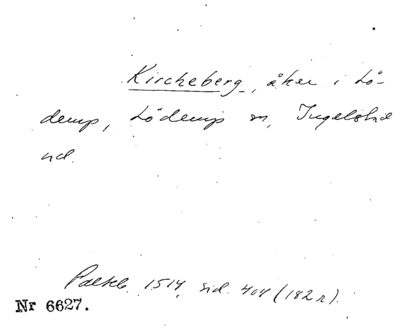 Kircheberg, åker i Lö-
derup, Löderup sn, Ingelstad
hd.
Palteb. 1514, sid. 404 (182 r).
Nr 6627.